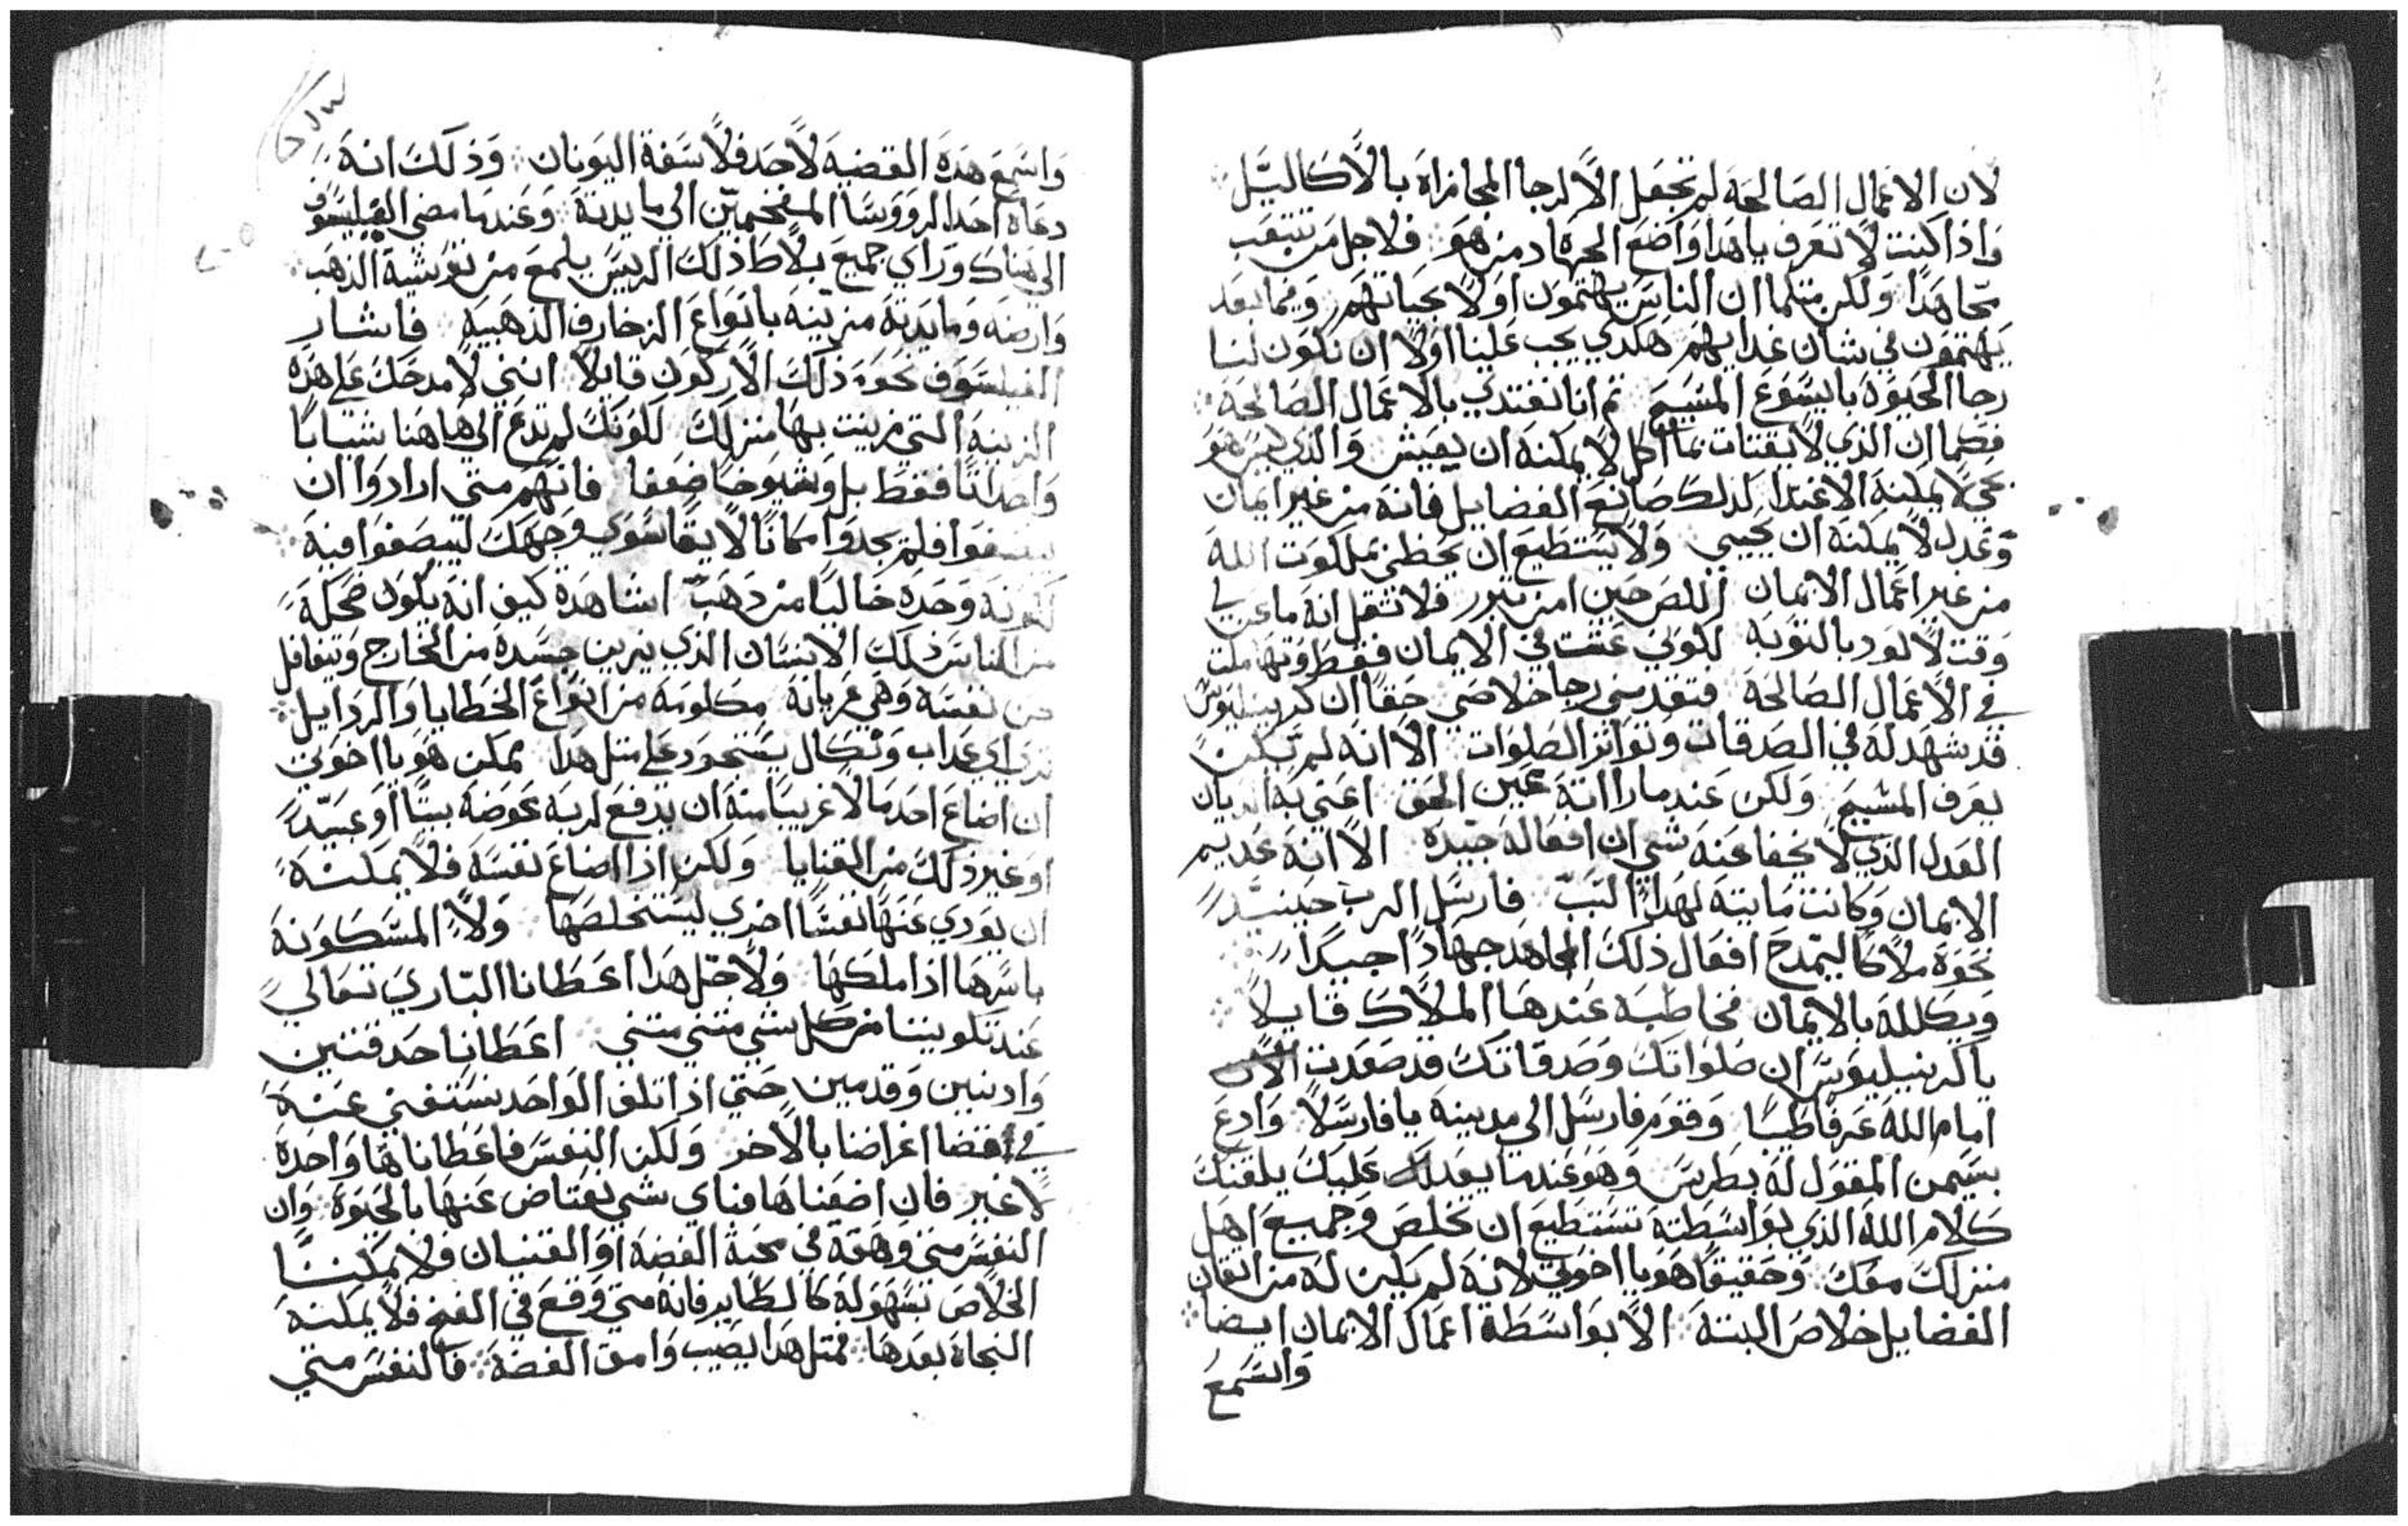 لان الاعمال الصالحة لم تجعل الا لرجا المجازاة بالاكاليل
واذا كنت لا تعرف يا هذا واضع الجهاد من هو فلاجل من تتعب
تجاهدا ولكن مثلما ان الناس يهتمون اولا بحياتهم وفيما بعد
يهتمون في شان غدايهم هكدي يجب علينا اولا ان تكون لنا
رجا الحيوة باليسوع المسيح ثم انا نغتدي بالاعمال الصالحة
فكما ان الذي لا يقتات بماكل لا يمكنه ان يعيش والذي ليس هو
بحي لا يمكنه الاغتدا كذلك صانع الفضايل فانه من غير ايمان
وعدل لا يمكنه ان يحيي ولا يستطيع ان يحظي بملكوت الله
من غير اعمال الايمان اللص حين امن تبرر فلا تقل انه ما عن لي
وقت لالود بالتوبة لكوني عشت في الايمان فقط وتهاملت
في الاعمال الصالحة فتقدسني رجا خلاصي حقا ان كرنيليوس
قد شهد له في الصدقات وتواتر الصلوات الا انه لم يكن
يعرف المسيح ولكن عندما راانه عين الحق اعني به الديان
العدل الذي لا يخفا عنه شي ان افعاله جيدة الا انه عديم
الايمان وكانت مايتة لهذا السبب فارسل الرب حينيد
نحوه ملاكا ليمدح افعال ذلك المجاهد جهادا جيدا
ويكلله بالايمان فخاطبه عندها الملاك قايلا
يا كرنيليوس ان صلواتك وصدقاتك قد صعدت الان
امام الله عرفا طيبا وقوم فارسل الي مدينة يافا رسلا وادع
بسيمن المقول له بطرس وهو عندما يفد عليك يلقنك
كلام الله الذي بواسطته تستطيع ان تخلص وجميع اهل
منزلك معك وحقيقا هو يا اخوتي لانه لم يكن له من اتقان
الفضايل خلاص البتة الا بواسطة اعمال الايمان ايضا
واسمع
واسمع هذه القضية لاحد فلاسفة اليونان وذلك انه
دعاه احد الرووسا المفخمين الي مايدته وعندما مضي الفيلسوف
الي هناك وراي جميع بلاط ذلك الريس يلمع من توشية الذهب
وارضه ومايدته مزينة بانواع الزخارف الذهبية فاشار
الفيلسوف نحو ذلك الاركون قايلا انني لامدحك علي هذه
الزينة التي زينت بها منزلك لكونك لم تدع الي هاهنا شبابا
واصدانا فقط بل وشيوخا ضعفا فانهم متي ارادوا ان
يبصقوا فلم يجدوا مكانا لايقا سوي وجهك ليبصقوا فيه
لكونه وحده خاليا من دهب اشاهدة كيف انه يكون ضحكة
من الناس ذلك الانسان الذي يزين جسده من الخارج ويتغافل
عن نفسه وهي عريانة مكلومة من انواع الخطايا والردايل
تري اي عداب ونكال يستحود علي مثل هذا يمكن هو يا اخوتي
ان اضاع احد مالا غريبا منه ان يدفع لربه عوضه بيتا او عبيدا
او غير ذلك من القنايا ولكن اذا اضاع نفسه فلا يمكنه
ان يودي عنها نفسا اخري ليستخلصها ولا المسكونة
باسرها اذا ملكها ولاجل هذا اعطانا الباري تعالي
عند تكويننا من كل شي متني متني اعطانا حدقتين
وادنين وقدمين حتي اذا تلف الواحد نستغني عنه
في اقتضا اغراضنا بالاخر ولكن النفس فاعطاناها واحدة
لا غير فان اضعناها فباي شي نعتاض عنها بالحيوة وان
النفس متي وهقة في محبة الفضة او القنيان فلا يمكننا
الخلاص بسهولة كالطاير فانه متي وقع في الفخ فلا يمكنه
النجاة بعدها فمثل هذا يصيب وامق الفضة فالنفس متي